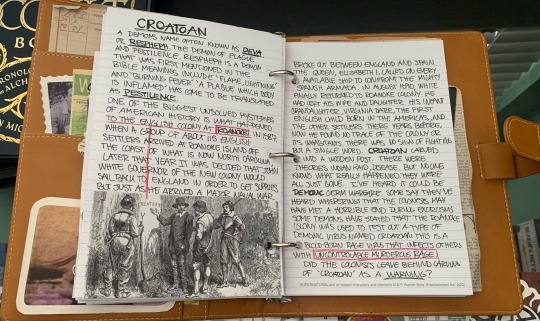 CROATOAN
A DEMONS NAME OFTEN KNOWN AS DEVA
OR RESPHEPH. THE DEMON OF PLAGUE
AND PESTILENCE. RESPHEPH IS A DEMON
THAT WAS FIRST MENTIONED IN THE
BIBLE MEANING, INCLUDE "FLAME, LIGHTNING"
AND "BURNING FEVER" "A PLAGUE WHICH A
IS INFLAMED" HAS COME TO BE TRANSLATED
AS PESTILENCE.
ONE OF THE BIGGEST UNSOLVED MYSTERIES
OF AMERICAN HISTORY IS WHAT HAPPENED
TO THE ENGLISH COLONY AT ROANOKE IN 1587.
WHEN A GROUP OF ABOUT 115 ENGLISH
SETTLERS ARRIVED AT ROANOKE ISLAND OFF
THE COAST OF WHAT IS NOW NORTH CAROLINA
LATER THAT YEAR IT WAS DECIDED THAT JOHN
WHITE GOVERNOR OF THE NEW COLONY WOULD
SAIL BACK TO ENGLAND IN ORDER TO GET SUPPLIES
BUT JUST AS HE ARRIVED A MAJOR NAVAL WAR
BROKE OUT BETWEEN ENGLAND AND SPAIN.
THE QUEEN, ELIZABETH I, CALLED ON EVERY
AVAILABLE SHIP TO CONFRONT THE MIGHTY
SPANISH ARMADA. IN AUGUST 1590, WHITE
FINALLY RETURNED TO ROANOKE WHERE
HE HAD LEFT HIS WIFE AND DAUGHTER. HIS INFANT
GRANDDAUGHTER, VIRGINIA DARE, THE FIRST
ENGLISH CHILD BORN IN THE AMERICAS, AND
THE OTHER SETTLERS THREE YEARS BEFORE.
NOW HE FOUND NO TRACE OF THE COLONY OR
ITS INHABITANTS. THERE WAS NO SIGN OF FIGHTING
BUT A SINGLE WORD. CROATOAN CARVED
INTO A WOODEN POST. THERE WERE
THEORIES. INDIAN RAID, DISEASE. BUT NO ONE
KNOWS WHAT REALLY HAPPENED, THEY WERE
ALL JUST GONE. I'VE HEARD IT COULD BE
DEMONIC GERM WARFARE. SOME SAY THEY'VE
HEARD WHISPERING THAT THE COLONISTS MAY
HAVE MET A HORRIBLE END DURING EXORCISMS
SOME DEMONS HAVE STATED THAT THE ROANOKE
COLONY WAS USED TO TEST OUT A TYPE OF
DEMONIC VIRUS NAMED CROATOAN. THIS IS A
BLOOD-BORN RAGE VIRUS THAT INFECTS OTHERS
WITH UNCONTROLABLE MURDEROUS RAGE.
DID THE COLONISTS LEAVE BEHIND CARVING
OF "CROATOAN" AS A WARNING?